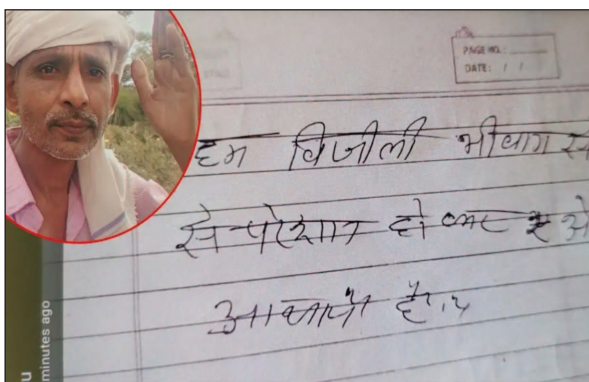 PAGE NO.:
DATE: / /
हम विजीली भीवाग से
से परेशान हो कर
है
minutes ago